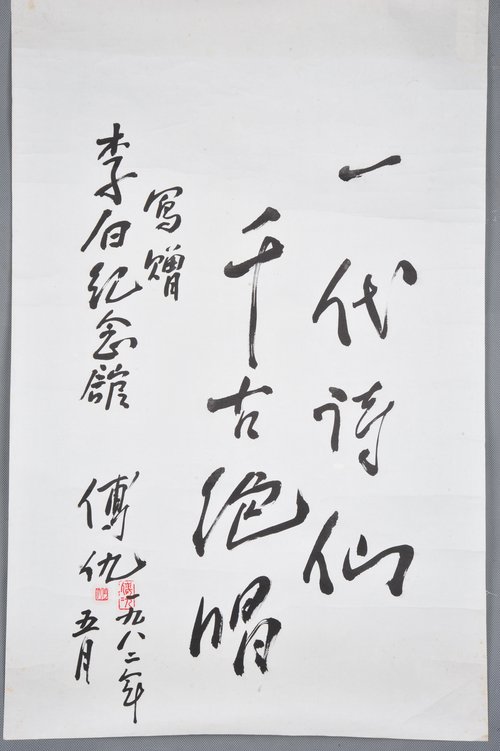 一代诗仙
千古绝唱
寫赠
李白纪念舘
傅仇
一九八二年
五月